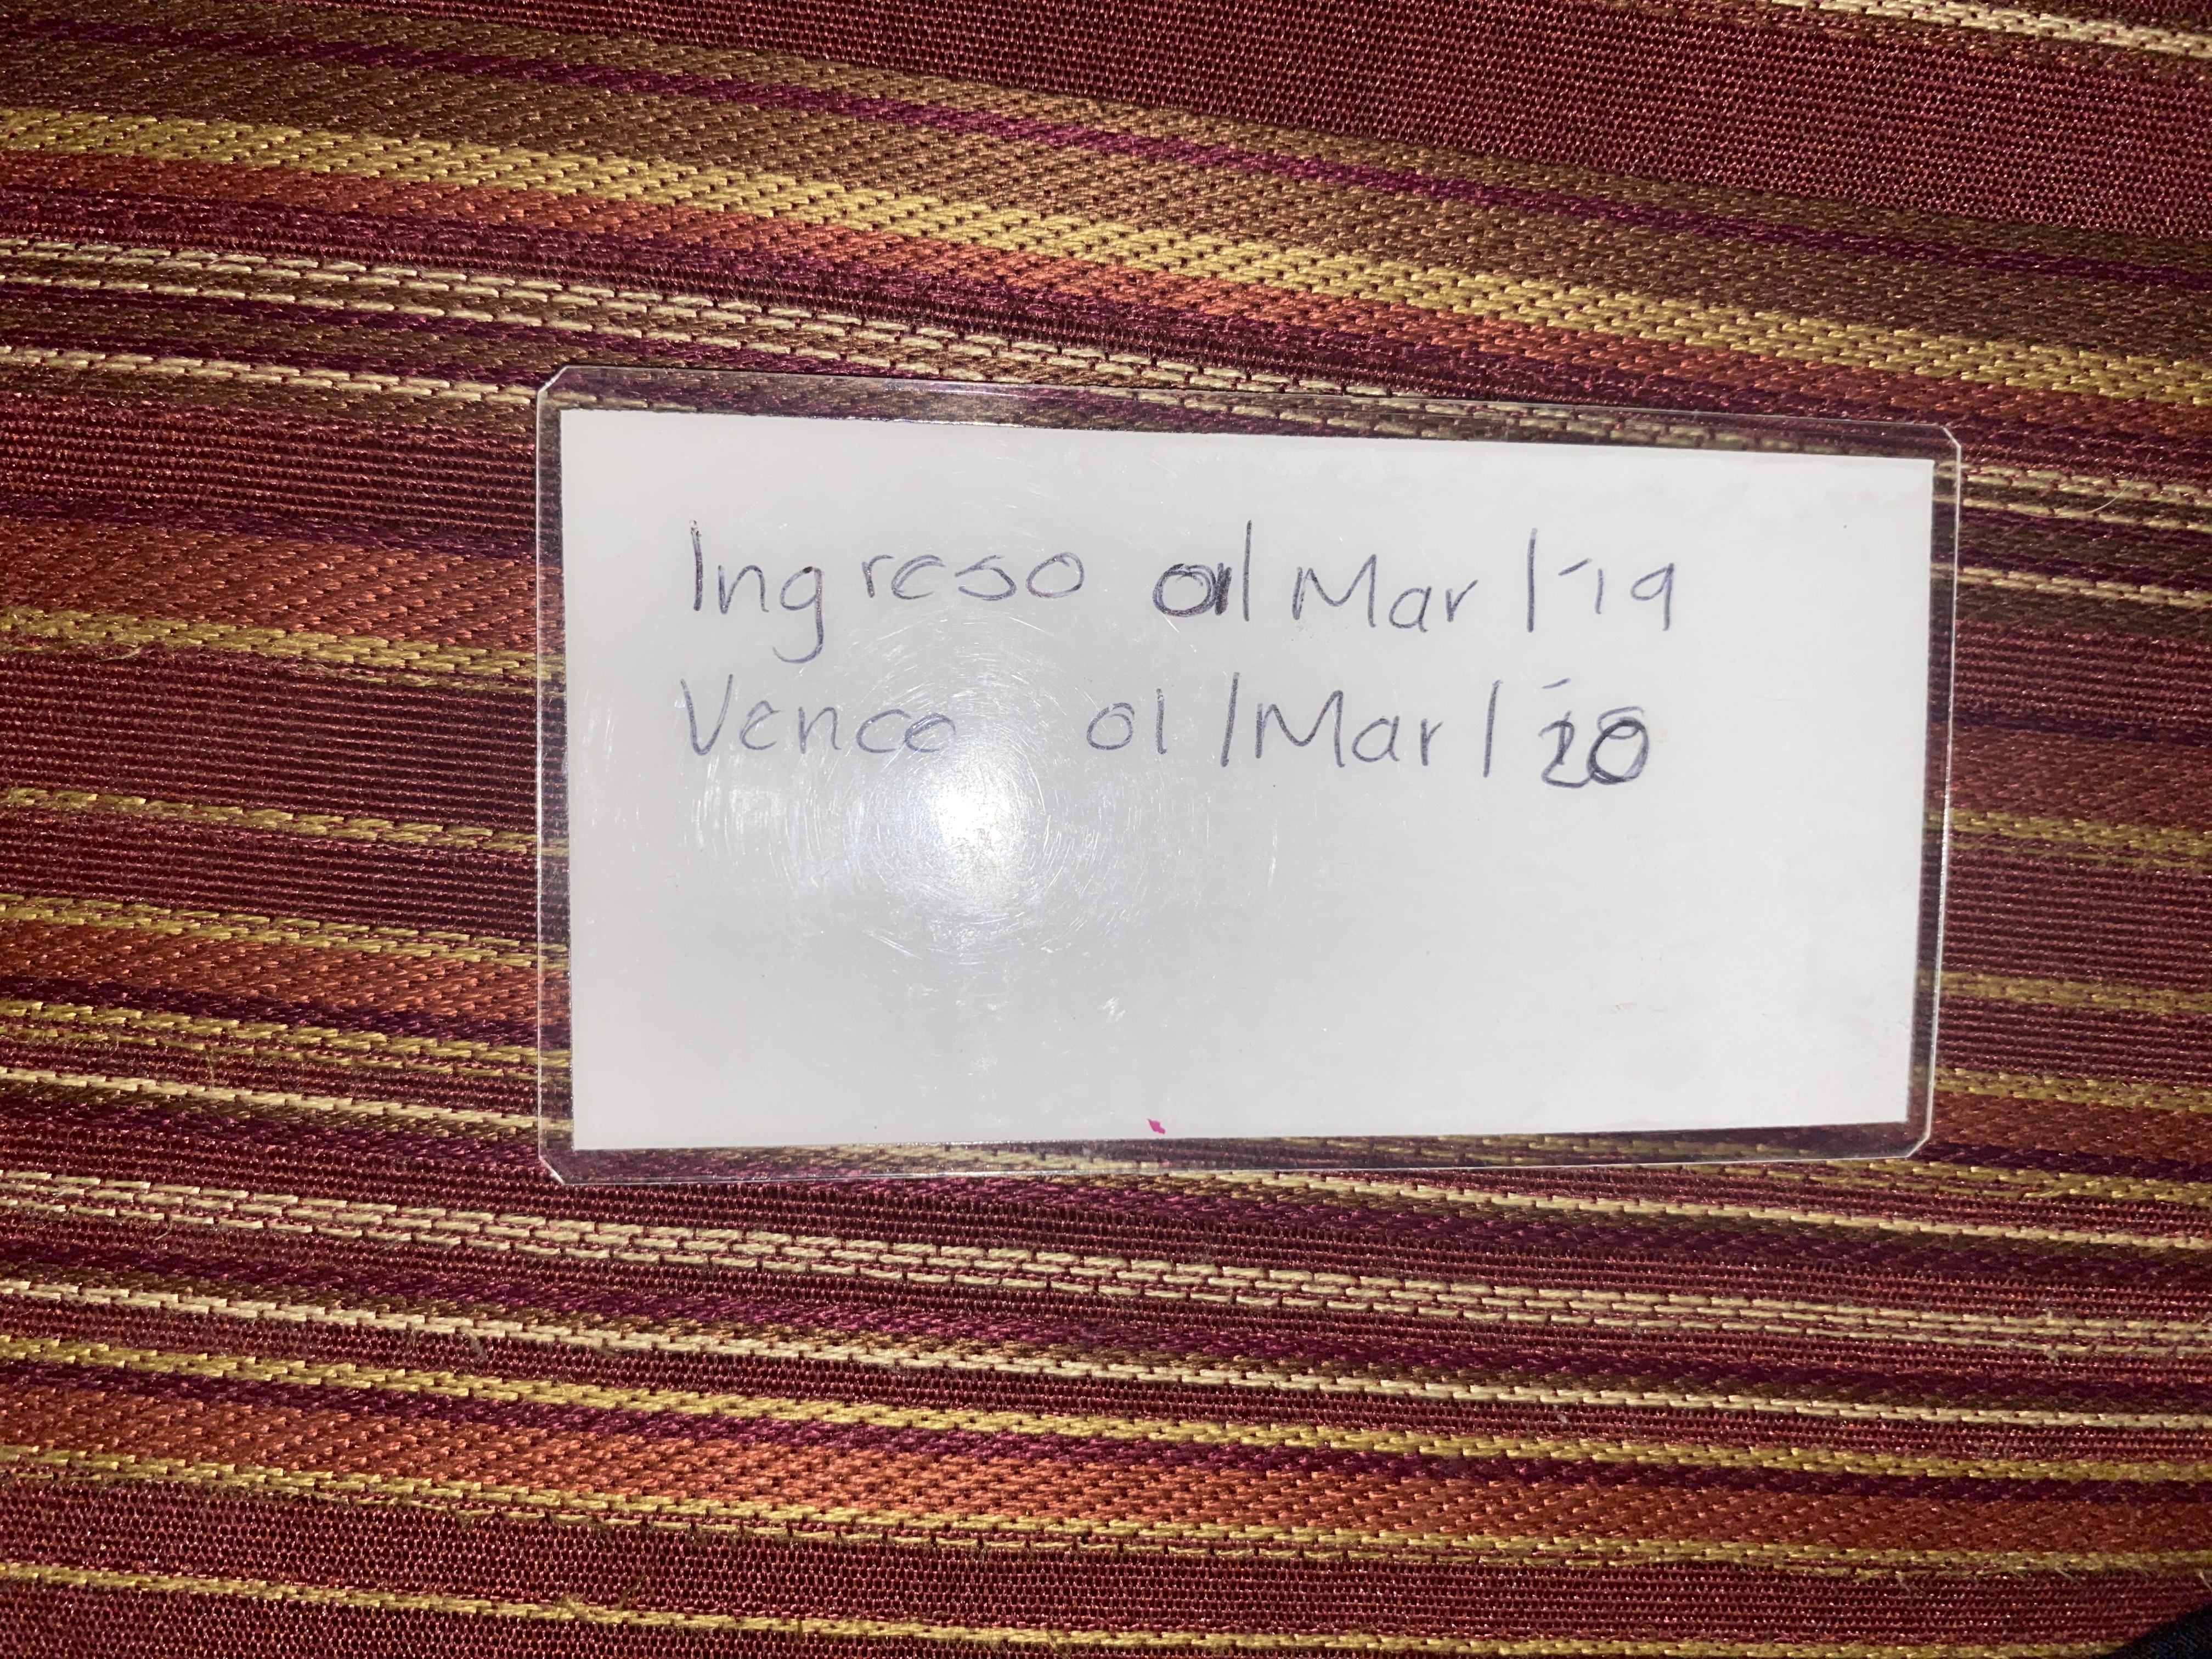 Ingreso 01/Mar/'19
Vence 01/Mar/'20